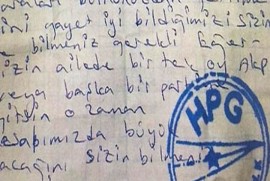 ini gayet iyi bildiğimizi sizin
bilmeniz gerekli Eğer
izin ailede bir tek oy Akp
veya başka bir par
gitsin o zaman
esabımızda büyü
acağını sizin bilmeni
HPG